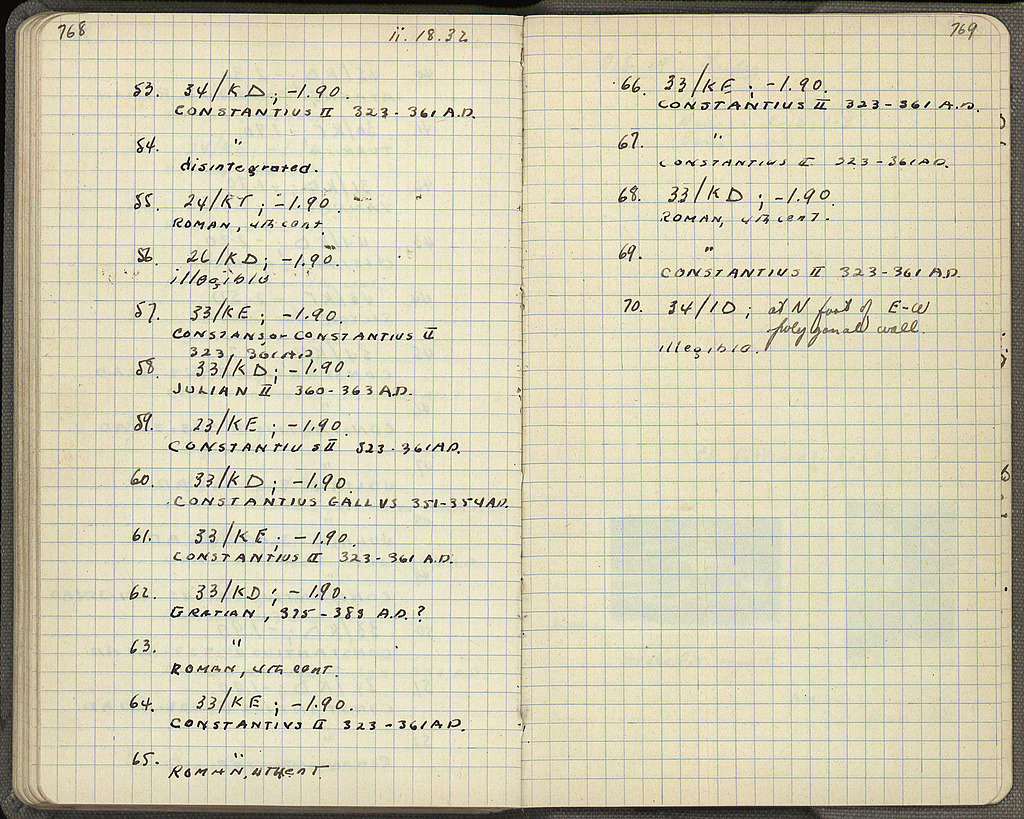 768
ii. 18.32
53. 34/KD; -1.90.
CONSTANTIUS II 323-361 A.D.
54. "
disintegrated.
55. 24/KT; -1.90.
ROMAN, 4th cent.
56. 26/KD; -1.90.
illegible
57. 33/KE; -1.90.
CONSTANS or CONSTANTIUS II
323, 361 A.D.
58. 33/KD; -1.90.
JULIAN II 360-363 A.D.
59. 23/KE; -1.90.
CONSTANTIUS II 323-361 A.D.
60. 33/KD; -1.90.
CONSTANTIUS GALLUS 351-354 A.D.
61. 33/KE; -1.90.
CONSTANTIUS II 323-361 A.D.
62. 33/KD; -1.90.
GRATIAN, 375-383 A.D.?
63. "
ROMAN, 4th cent.
64. 33/KE; -1.90.
CONSTANTIUS II 323-361 A.D.
65. "
ROMAN, 4th cent.
769
66. 33/KE; -1.90.
CONSTANTIUS II 323-361 A.D.
67. "
CONSTANTIUS II 323-361 A.D.
68. 33/KD; -1.90.
ROMAN, 4th cent.
69. "
CONSTANTIUS II 323-361 A.D.
70. 34/ID; at N foot of E-W
polygonal wall.
illegible.